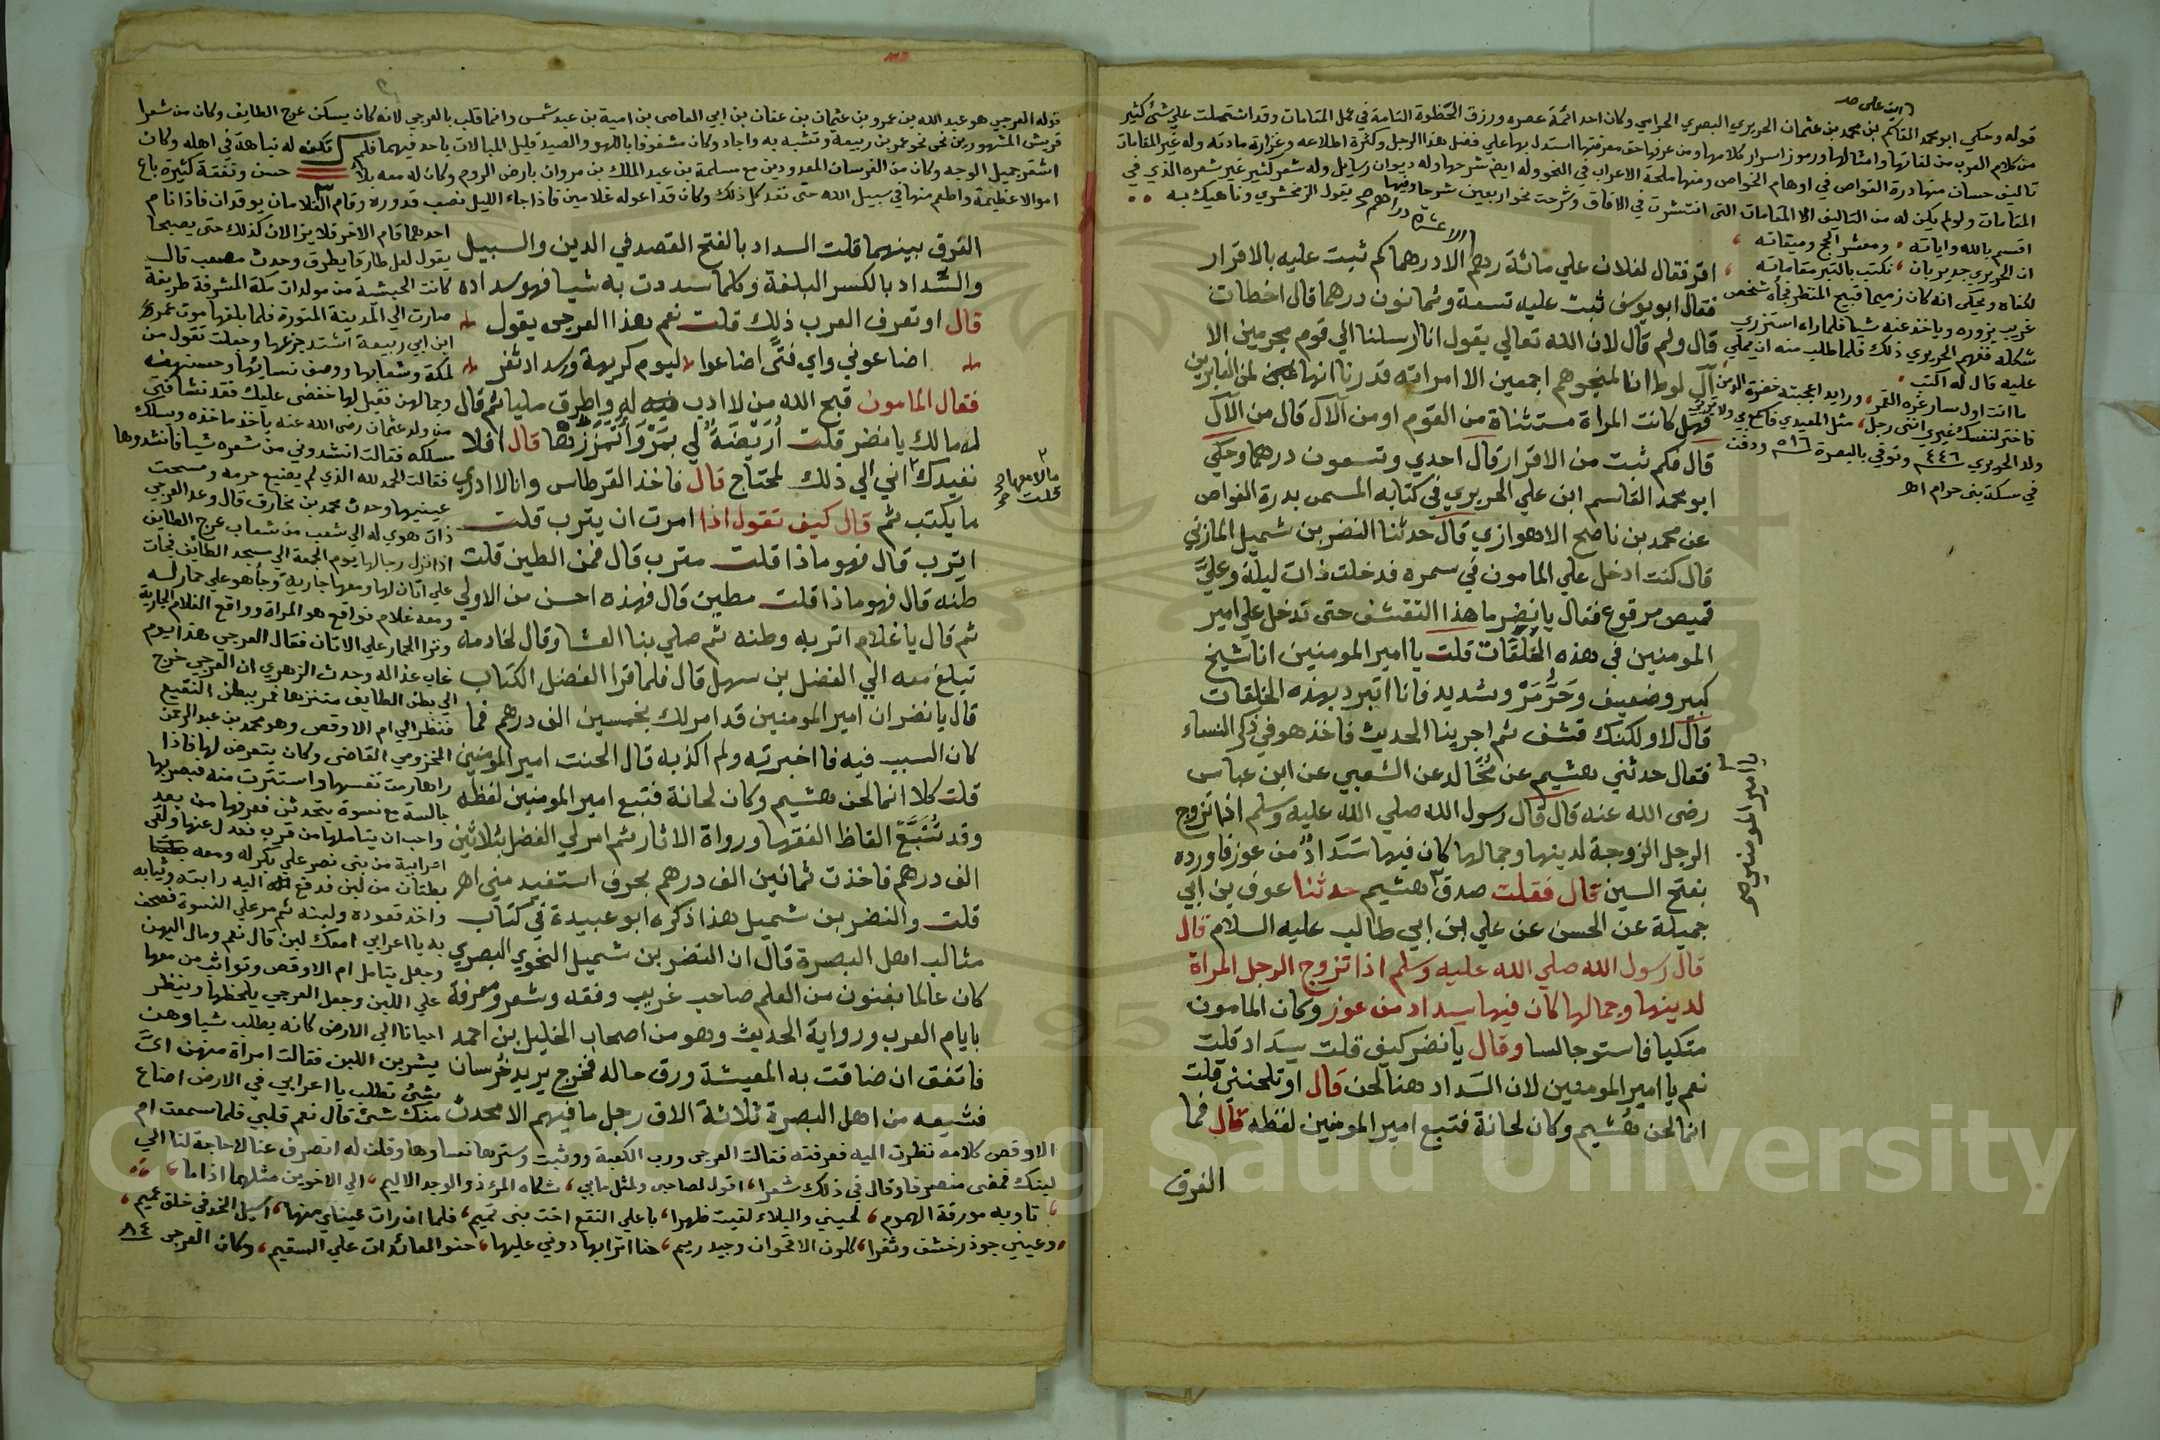 قوله وحكي ابو محمد القاسم بن محمد بن عثمان الحريري البصري الحرامي وكان احد ائمة عصره ورزق الحظوة التامة في عمل المقامات وقد اشتملت علي شئ كثير
من كلام العرب من لغاتها وامثالها ورموز اسرار كلامها ومن عرفها حق معرفتها استدل بها علي فضل هذا الرجل وكثرة اطلاعه وغزارة مادته وله غير المقامات
تاليف حسان منها درة الغواص في اوهام الخواص ومنها ملحة الاعراب في النحو وله ايض شرحها وله ديوان رسايل وله شعر كثير غير شعره الذي في
المقامات ولو لم يكن له من التاليف الا المقامات التي انتشرت في الافاق وشرحت نحو اربعين شرحا وفيها يقول الزمخشري وناهيك به
اقسم بالله واياته ومعشر الحج وميقاته
ان الحريري جدير بان نكتب بالتبر مقاماته
لكفاه ويحكى انه كان زميما قبيح المنظر فجاه شخص
غريب يزوره وياخذ عنه شيا فلما راه استزري
شكله ففهم الحريري ذلك فلما طلب منه ان يملي
عليه قال له اكتب
ما انت اول سار غره القمر ورايد اعجبته خضرة الدمن
فاختر لنفسك غيري انني رجل مثل المعيدي فاسمع بي ولا ترني
ولد الحريري ٤٤٦ وتوفي بالبصرة ٥١٦ ودفن
في سكة بني حرام اهـ
اقر فقال لفلان علي مائة درهم الا درهما كم ثبت عليه بالاقرار
فقال ابو يوسف ثبت عليه تسعة وثمانون درهما قال اخطات
قال ولم قال لان الله تعالي يقول انا ارسلنا الي قوم مجرمين الا
آل لوط انا لمنجوهم اجمعين الا امراته قدرنا انها لمن الغابرين
فهل كانت المراة مستثناة من القوم او من الآل قال من الآل
قال فكم ثبت من الاقرار قال احدي وتسعون درهما وحكي
ابو محمد القاسم ابن علي الحريري في كتابه المسمى بدرة الغواص
عن محمد بن ناصح الاهوازي قال حدثنا النضر بن شميل المازني
قال كنت ادخل علي المامون في سمره فدخلت ذات ليلة وعليَّ
قميص مرقوع فقال يا نضر ما هذا التقشف حتى تدخل علي امير
المومنين في هذه الخلقات قلت يا امير المومنين انا شيخ
كبير وضعيف وحر مرو شديد فانا اتبرد بهذه الخلقات
قال لا ولكنك قشف ثم اجرينا الحديث فاخذ هو في ذكر النساء
فقال حدثني هشيم عن مجالد عن الشعبي عن ابن عباس
يا امير المومنين صح
رضي الله عنه قال قال رسول الله صلي الله عليه وسلم اذا تزوج
الرجل الزوجة لدينها وجمالها كان فيها سَدَادٌ من عوز فاورده
بفتح السين قال فقلت صدق هشيم حدثنا عوف بن ابي
جميلة عن الحسن عن علي ابن ابي طالب عليه السلام قال
قال رسول الله صلي الله عليه وسلم اذا تزوج الرجل المراة
لدينها وجمالها كان فيها سداد من عوز وكان المامون
متكيا فاستو جالسا وقال يا نضر كيف قلت سِدَاد قلت
نعم يا امير المومنين لان السَداد هنا لحن قال او تلحنني قلت
انما لحن هُشيم وكان لحانة فتبع امير المومنين لفظه قال فما
الفرق
قوله العرجي هو عبد الله بن عمرو بن عثمان بن عفان بن ابي العاصي بن امية بن عبد شمس وانما قلب بالعرجي لانه كان يسكن عرج الطايف وكان من شعرا
قريش المشهورين نحى نحو عمر بن ربيعة وتشبه به واجاد وكان مشغوفا باللهو والصيد قليل المبالات باحد فيهما فلم تكن له نباهة في اهله وكان
اشقر جميل الوجه وكان من الفرسان المعدودين مع مسلمة بن عبد الملك بن مروان بارض الروم وكان له معه بلا حسن ونفقة كثيرة باع
اموالا عظيمة واطعم منها في سبيل الله حتى نفد كل ذلك وكان قد اعد له غلامين فاذا جاء الليل نصب قدوره وقام الغلامان يوقدان فاذا نام
الفرق بينهما قلت السداد بالفتح القصد في الدين والسبيل
والسِّداد بالكسر البلغة وكلما سددت به شيا فهو سداده
قال او تعرف العرب ذلك قلت نعم هذا العرجي يقول
اضاعوني واي فتًى اضاعوا ليوم كريهة وسداد ثغر
فقال المامون قبح الله من لا ادب له واطرق مليا ثم قال
له مالك يا نضر قلت أُرَيْضَةٌ لي بمرو قال افلا
نفيدك اني الي ذلك لمحتاج قال فاخذ القرطاس وانا لا ادري
ما يكتب ثم قال كيف تقول اذا امرت ان يترب قلت
اترب قال فهو ماذا قلت مترب قال فمن الطين قلت
طنه قال فهو ماذا قلت مطين قال فهذه احسن من الاولي
ثم قال يا غلام اتربه وطنه ثم صلي بنا العشا وقال لخادمه
تبلغ معه الي الفضل بن سهل قال فلما قرا الفضل الكتاب
قال يا نضر ان امير المومنين قد امر لك بخمسين الف درهم فما
كان السبب فيه فاخبرته ولم اكذبه قال الحنت امير المومنين
قلت كلا انما لحن هشيم وكان لحانة فتبع امير المومنين لفظه
وقد تُتَبَّعُ الفاظ الفقها ورواة الاثار ثم امر لي الفضل بثلاثين
الف درهم فاخذت ثمانين الف درهم بحرف استفيد مني اهـ
قلت والنضر بن شميل هذا ذكره ابو عبيدة في كتاب
مثالب اهل البصرة قال ان النضر بن شميل النحوي البصري
كان عالما بفنون من العلم صاحب غريب وفقه وشعر ومعرفة
بايام العرب ورواية الحديث وهو من اصحاب الخليل بن احمد
فاتفق ان ضاقت به المعيشة ورق حاله فخرج يريد خُرسان
فشيعه من اهل البصرة ثلاثة الاف رجل ما فيهم الا محدث
احدهما قام الاخر فلا يزالان كذلك حتى يصبحا
يقول لعل طارقا يطرق وحدث مصعب قال
كانت الحبشية من مولدات مكة المشرفة ظريفة
صارت الي المدينة المنورة فلما بلغها موت عمر
ابن ابي ربيعة اشتد جزعها وجعلت تقول من
لمكة وشعابها ووصف نسائها وحسنهن
وجمالهن فقيل لها خفضي عليك فقد نشا فتى
من ولد عثمان رضي الله عنه ياخذ ماخذه ويسلك
مسلكه فقالت انشدوني من شعره شيا فانشدوها
فقالت الحمد لله الذي لم يضيع حرمه ومسحت
عينيها وحدث محمد بن مخارق قال وعد العرجي
ذات هوي له الي شعب من شعاب عرج الطايف
اذا نزل رجالها يوم الجمعة الي مسجد الطائف فجات
علي اتان لها ومعها جارية وجا هو علي حمار له
ومعه غلام فواقع هو المراة وواقع الغلام الجارية
ونزا الحمار علي الاتان فقال العرجي هذا يوم
غاب عذاله وحدث الزهري ان العرجي خرج
الي بطن الطايف متنزها فمر ببطن النقيع
فنظر الي ام الاوقص وهو محمد بن عبد الرحمن
المخزومي القاضي وكان يتعرض لها فاذا
راها رمت نفسها واستترت منه فبصر بها
جالسة مع نسوة يتحدثن فعرفها من بعد
واحب ان يتاملها من قرب فعدل عنها ولقي
اعرابية من بني نصر علي بكر له ومعه
بطتان من لبن فدفع اليه دابته وثيابه
واخذ قعوده ولبنه ثم مر علي النسوة فصحن
به يا اعرابي امعك لبن قال نعم ومال اليهن
وجعل يتامل ام الاوقص وتواثب من معها
علي اللبن وجعل العرجي يلحظها وينظر
احيانا الي الارض كانه يطلب شيا وهن
يشربن اللبن فقالت امراة منهن ايَّ
شئ تطلب يا اعرابي في الارض اضاع
منك شئ قال نعم قلبي فلما سمعت ام
الاوقص كلامه نظرت اليه فعرفته فقالت العرجي ورب الكعبة ووثبت وسترها نساوها وقلن له انصرف عنا لا حاجة لنا الي
لبنك فمضى منصرفا وقال في ذلك شعرا اقول لصاحبي ولمثل مابي شكاه المرؤ ذو الوجد الاليم الي الاخوين مثلهما اذا ما
تاوبه مورقة الهموم لحيني والبلاء لقيت ظهرا باعلي النقع اخت بني تميم فلما ان رات عيناي منها اسيل الخد في خلق عميم
وعيني جوذر خشف وثغرا كلون الاقحوان وجيد ريم حنا اترابها دوني عليها حنو العائدات علي السقيم وكان العرجي
٨٤
Copyright © King Saud University